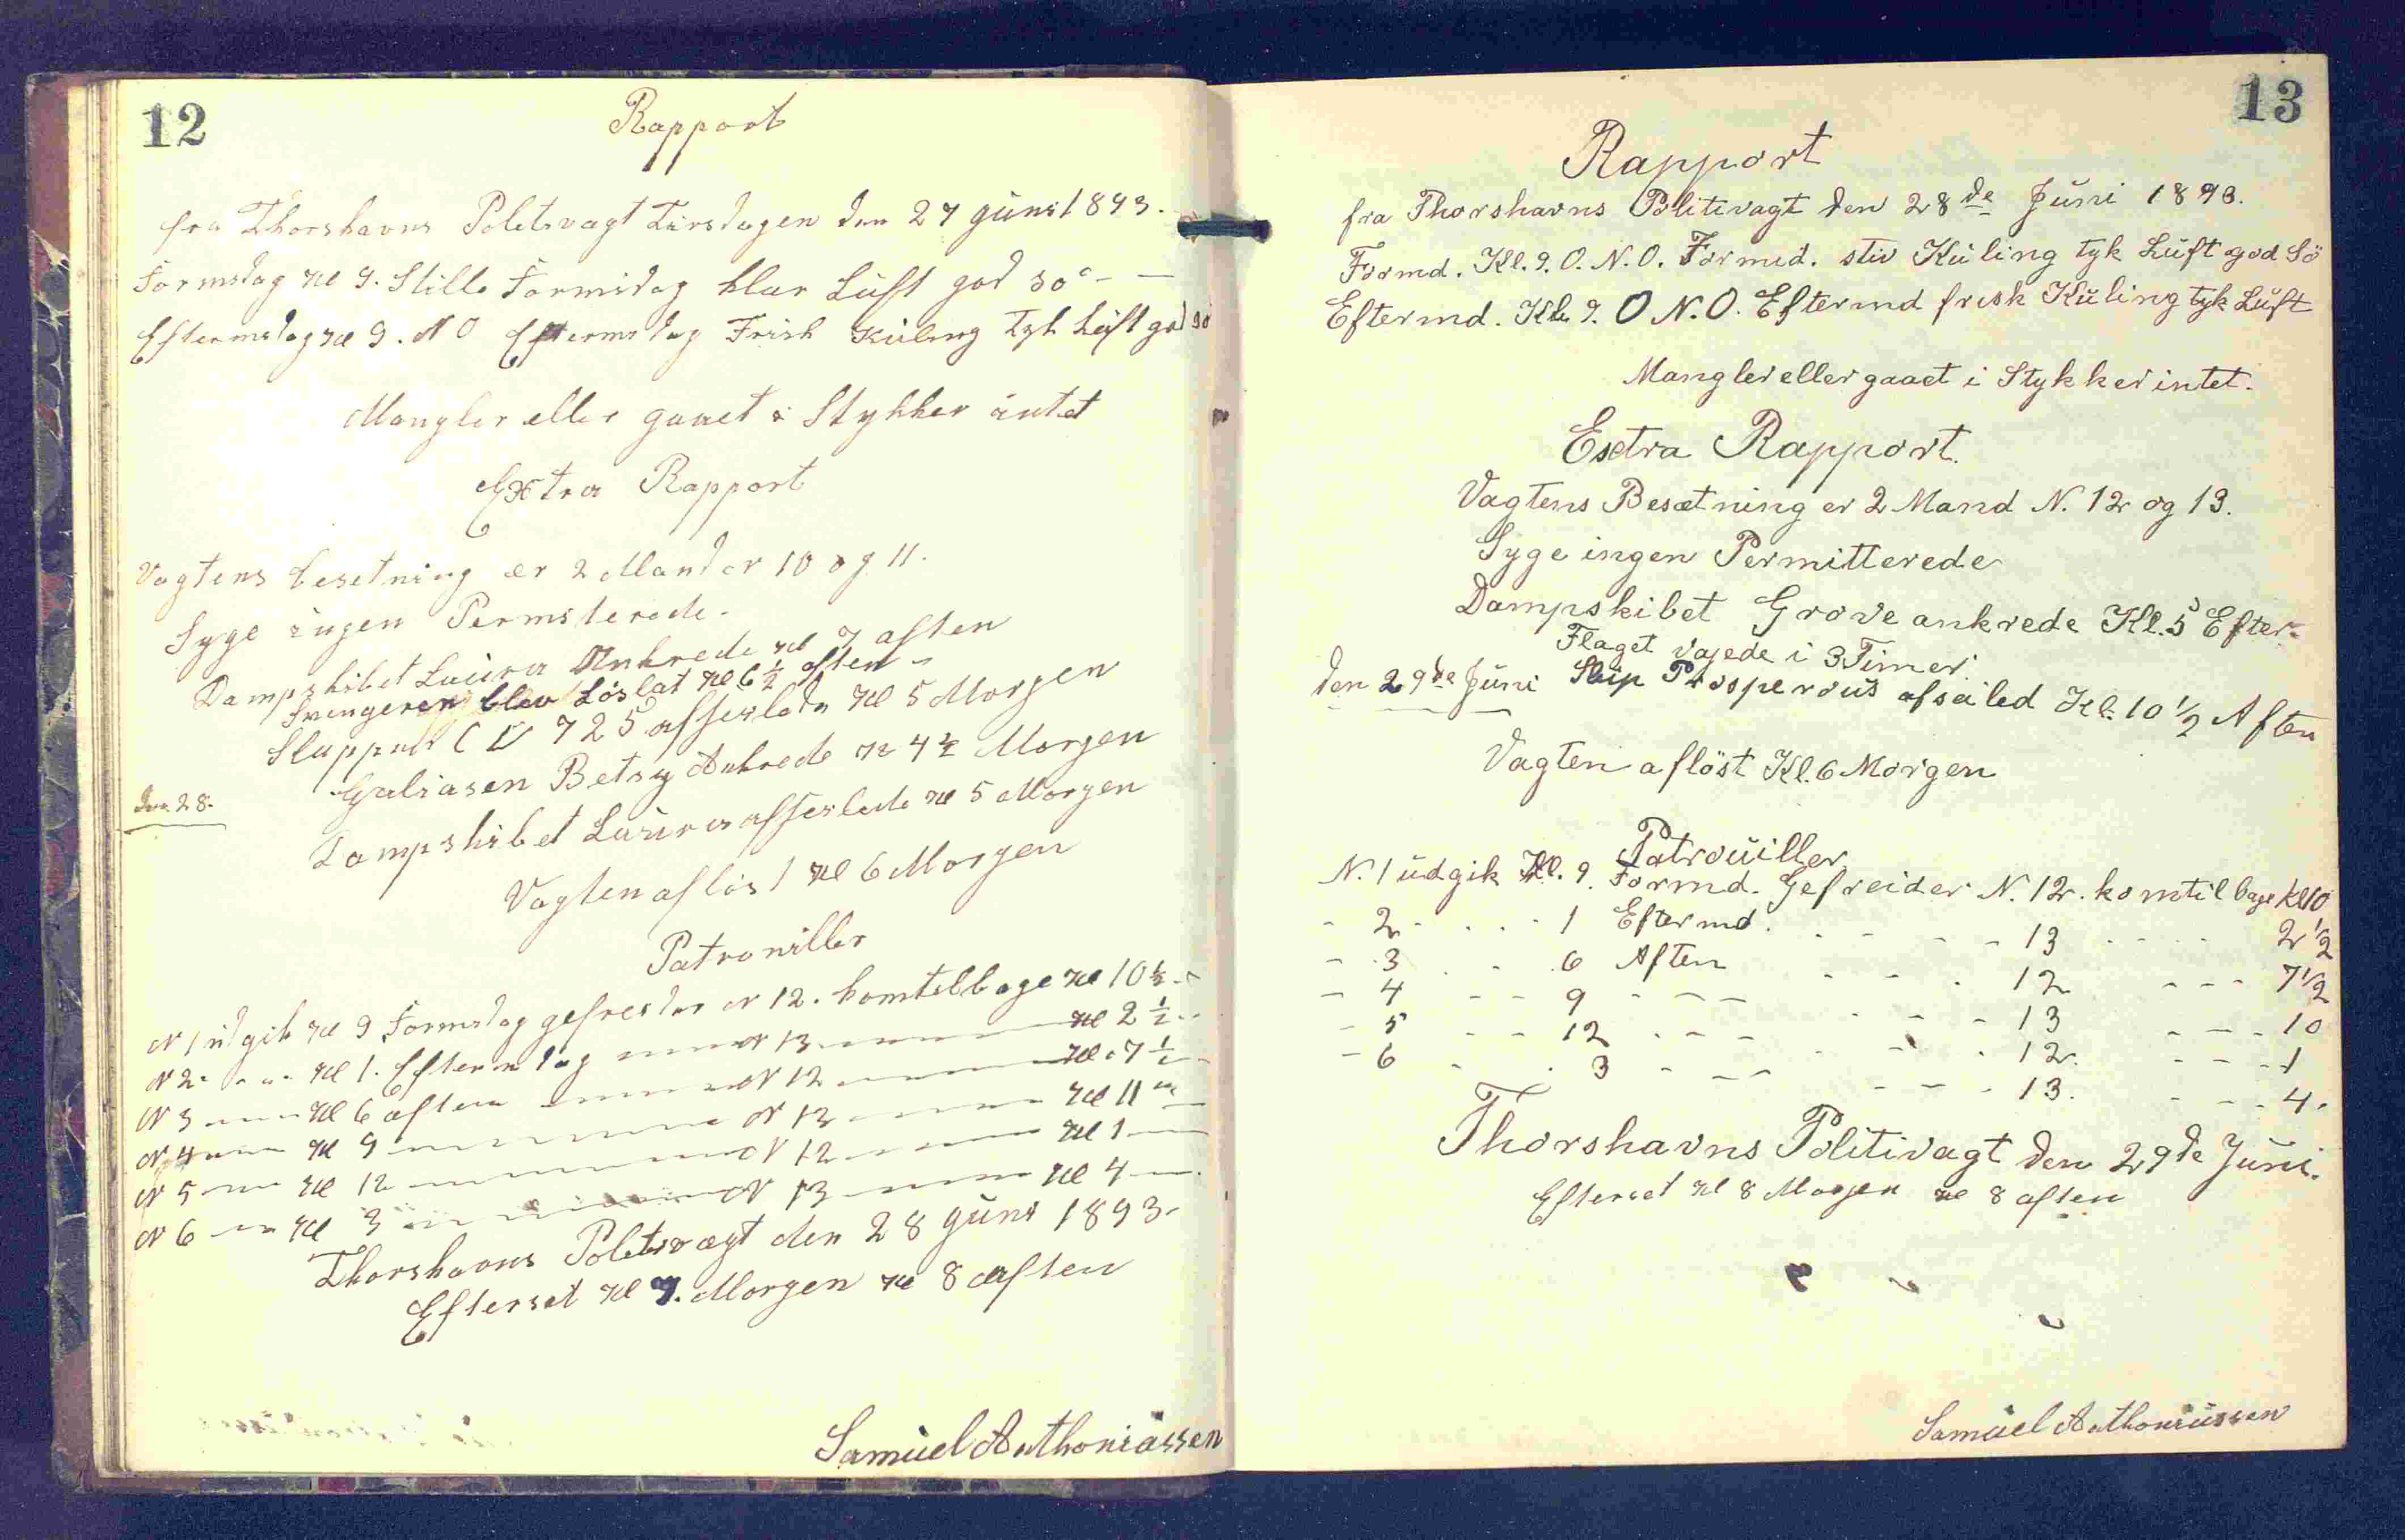 12
Rapport
fra Thorshavns Politivagt Tirsdagen den 27 Juni 1893.
Formidag Kl 9. Stille Formidag klar Luft god So
Eftermidag Kl 9. N O Eftermidag Frisk Kuling Tyk Luft god So
Mangler eller gaaet i Stykker intet
Extra Rapport
Vagtens besetning er 2 Mand Nr 10 og 11.
Syge ingen Permiterede.
Dampskibet Laura Ankrede Kl 7 aften
Svingeren blev Löslat Kl 6 ½ aften
Sluppen 725 afseilede Kl 5 Morgen
Galiasen Betsy Ankrede Kl 4 ½ Morgen
den 28.
Dampskibet Laura afseilede Kl 5 Morgen
Vagten afløst Kl 6 Morgen
Patrouiller
N 1 udgik Kl 9 Formidag gefreider N 12. komtilbage Kl 10 ½
N 2 - - - Kl 1. Eftermidag - - - N 13 - - - Kl 2 ½
N 3 - - - Kl 6 aften - - - N 12 - - - Kl 7 ½
N 4 - - - Kl 9 - - - N 13 - - - Kl 11
N 5 - - - Kl 12 - - - N 12 - - - Kl 1
N 6 - - - Kl 3 - - - N 13 - - - Kl 4
Thorshavns Politivagt den 28 Juni 1893.
Efterset Kl 7. Morgen Kl 8 aften
Samuel Anthoniussen
13
Rapport
fra Thorshavns Politivagt den 28de Juni 1893.
Formd. Kl. 9. O. N. O. Formid. stiv Kuling tyk Luft god Sö
Eftermd. Kl. 9. O N. O. Eftermd frisk Kuling tyk Luft
Mangler eller gaaet i Stykker intet.
Extra Rapport.
Vagtens Besætning er 2 Mand N. 12 og 13.
Syge ingen Permitterede
Dampskibet Grove ankrede Kl. 5 Efter-
Flaget vajede i 3 Timer.
den 29de Juni Skip Prosperous afseiled Kl. 10 1/2 Aften
Vagten aflöst Kl. 6 Morgen
Patrouiller.
N. 1 udgik Kl. 9. Formd. Gefreider N. 12. komtilbage Kl 10
- 2 - - - 1 Eftermd. - - - - 13 - - - - 2 1/2
- 3 - - 6 Aften - - - 12 - - - 7 1/2
- 4 - - 9 - - - - - - 13 - - - 10
- 5 - - 12 - - - - - - 12. - - - 1
- 6 - - 3 - - - - - - 13. - - - 4.
Thorshavns Politivagt den 29de Juni.
Efterset Kl 8 Morgen Kl 8 aften
Samuel Anthoniussen